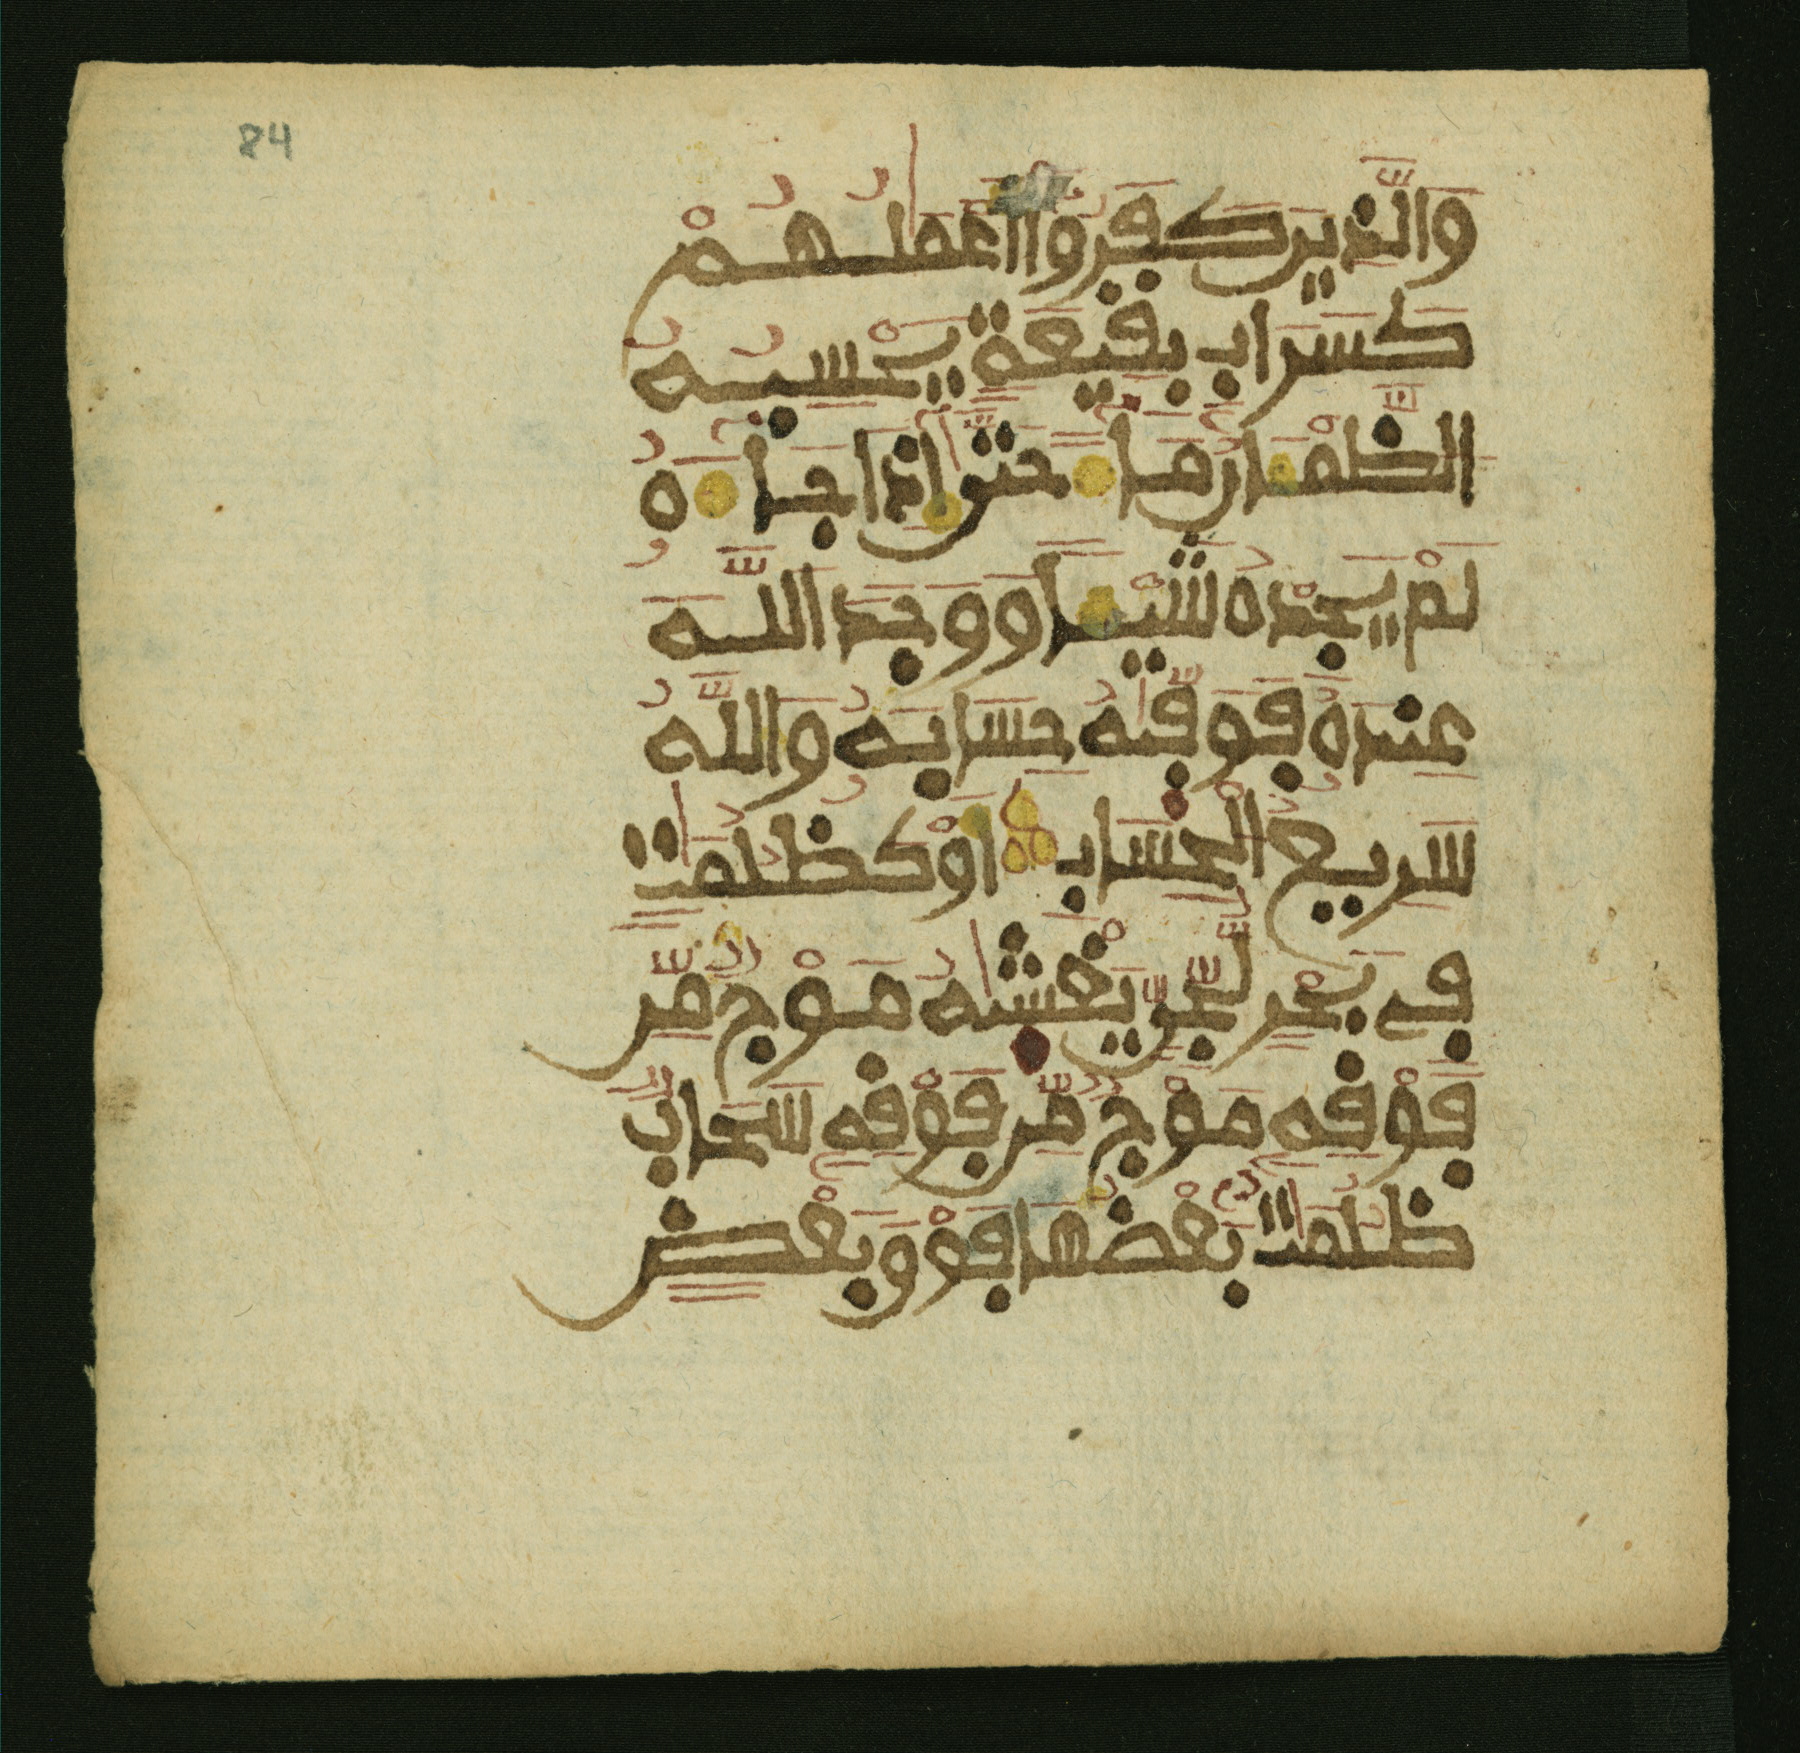 84
وَالَّذِينَ كَفَرُوا أَعْمَٰلُهُمْ
كَسَرَابٍ بِقِيعَةٍ يَحْسِبُهُ
الظَّمْـَٔانُ مَآءً حَتَّىٰٓ إِذَا جَآءَهُ
لَمْ يَجِدْهُ شَيْـًٔا وَوَجَدَ اللَّهَ
عِندَهُ فَوَفَّىٰهُ حِسَابَهُ وَاللَّهُ
سَرِيعُ الْحِسَابِ أَوْ كَظُلُمَٰتٍ
فِے بَحْرٍ لُّجِّيٍّ يَغْشَىٰهُ مَوْجٌ مِّن
فَوْقِهِ مَوْجٌ مِّن فَوْقِهِ سَحَابٌ
ظُلُمَٰتٌ بَعْضُهَا فَوْقَ بَعْضٍ